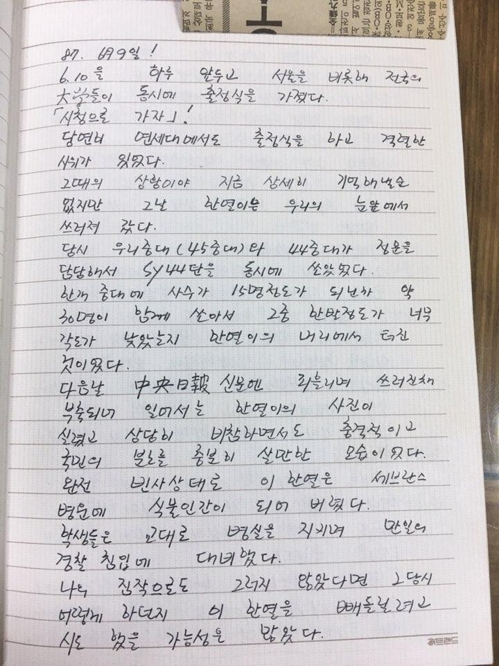 87. 6月9일!
6.10을 하루 앞두고 서울을 비롯해 전국의
大学들이 동시에 출정식을 가졌다.
「시청으로 가자」!
당연히 연세대에서도 출정식을 하고 격렬한
시위가 있었다.
그때의 상황이야 지금 상세히 기억해낼순
없지만 그난 한연이는 우리의 눈앞에서
쓰러져 갔다.
당시 우리중대(45중대)와 44중대가 정문을
담당해서 SY44탄을 동시에 쏘았었다.
한개 중대에 사수가 15명정도가 되니까 약
30명이 함께 쏘아서 그중 한발정도가 너무
각도가 낮았는지 한연이의 머리에서 터진
것이었다.
다음날 中央日報 신문엔 피흘리며 쓰러진채
부축되어 일어서는 한연이의 사진이
실렸고 상당히 비참하면서도 충격적이고
국민의 분노를 충분히 살만한 모습이었다.
완전 빈사상태로 이한열은 세브란스
병원에 식물인간이 되어 버렸다.
학생들은 교대로 병실을 지키며 만일의
경찰 침입에 대비했다.
나의 짐작으로도 그러지 않았다면 그당시
어떻게 하던지 이한열을 빼돌릴려고
시도 했을 가능성은 많았다.